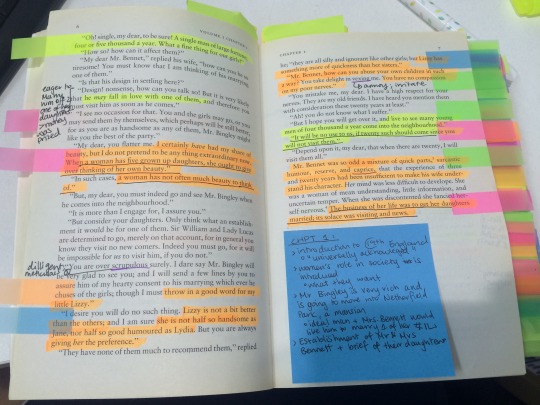 6
VOLUME I CHAPTER I
"Oh! single, my dear, to be sure! A single man of large fortune;
four or five thousand a year. What a fine thing for our girls!"
"How so? how can it affect them?"
"My dear Mr. Bennet," replied his wife, "how can you be so
tiresome! You must know that I am thinking of his marrying
one of them."
"Is that his design in settling here?"
"Design! nonsense, how can you talk so! But it is very likely
that he may fall in love with one of them, and therefore
visit him as soon as he comes."
"I see no occasion for that. You and the girls may go, or you
may send them by themselves, which perhaps will be still better,
for as you are as handsome as any of them, Mr. Bingley might
like you the best of the party."
"My dear, you flatter me. I certainly have had my share of
beauty, but I do not pretend to be any thing extraordinary now.
When a woman has five grown up daughters, she ought to give
over thinking of her own beauty."
"In such cases, a woman has not often much beauty to think
of."
"But, my dear, you must indeed go and see Mr. Bingley when
he comes into the neighbourhood."
"It is more than I engage for, I assure you."
"But consider your daughters. Only think what an establish-
ment it would be for one of them. Sir William and Lady Lucas
are determined to go, merely on that account, for in general you
know they visit no new comers. Indeed you must go, for it will
be impossible for us to visit him, if you do not."
"You are over scrupulous surely. I dare say Mr. Bingley will
be very glad to see you; and I will send a few lines by you to
assure him of my hearty consent to his marrying which ever he
chuses of the girls; though I must throw in a good word for my
little Lizzy."
"I desire you will do no such thing. Lizzy is not a bit better
than the others; and I am sure she is not half so handsome as
Jane, nor half so good humoured as Lydia. But you are always
giving her the preference."
"They have none of them much to recommend them," replied
eager to
marry
him off
daughters
diligent
CHAPTER I
7
he; "they are all silly and ignorant like other girls; but Lizzy has
something more of quickness than her sisters."
"Mr. Bennet, how can you abuse your own children in such
a way? You take delight in vexing me. You have no compassion
on my poor nerves."
"You mistake me, my dear. I have a high respect for your
nerves. They are my old friends. I have heard you mention them
with consideration these twenty years at least."
"Ah! you do not know what I suffer."
"But I hope you will get over it, and live to see many young
men of four thousand a year come into the neighbourhood."
"It will be no use to us, if twenty such should come since you
will not visit them."
"Depend upon it, my dear, that when there are twenty, I will
visit them all."
Mr. Bennet was so odd a mixture of quick parts, sarcastic
humour, reserve, and caprice, that the experience of three
and twenty years had been insufficient to make his wife under-
stand his character. Her mind was less difficult to develope. She
was a woman of mean understanding, little information, and
uncertain temper. When she was discontented she fancied her-
self nervous. The business of her life was to get her daughters
married; its solace was visiting and news.
annoy, irritate
CHPT 1:
introduction to England
"universally acknowledged"
woman's role in society is
introduced
must they want
Mr Bingley is very rich and
is going to move into Netherfield
Park, a mansion
ideal man + Mrs. Bennett would
like him to marry 1 of her
Establishment of Mr & Mrs
Bennett + brief of their daughters